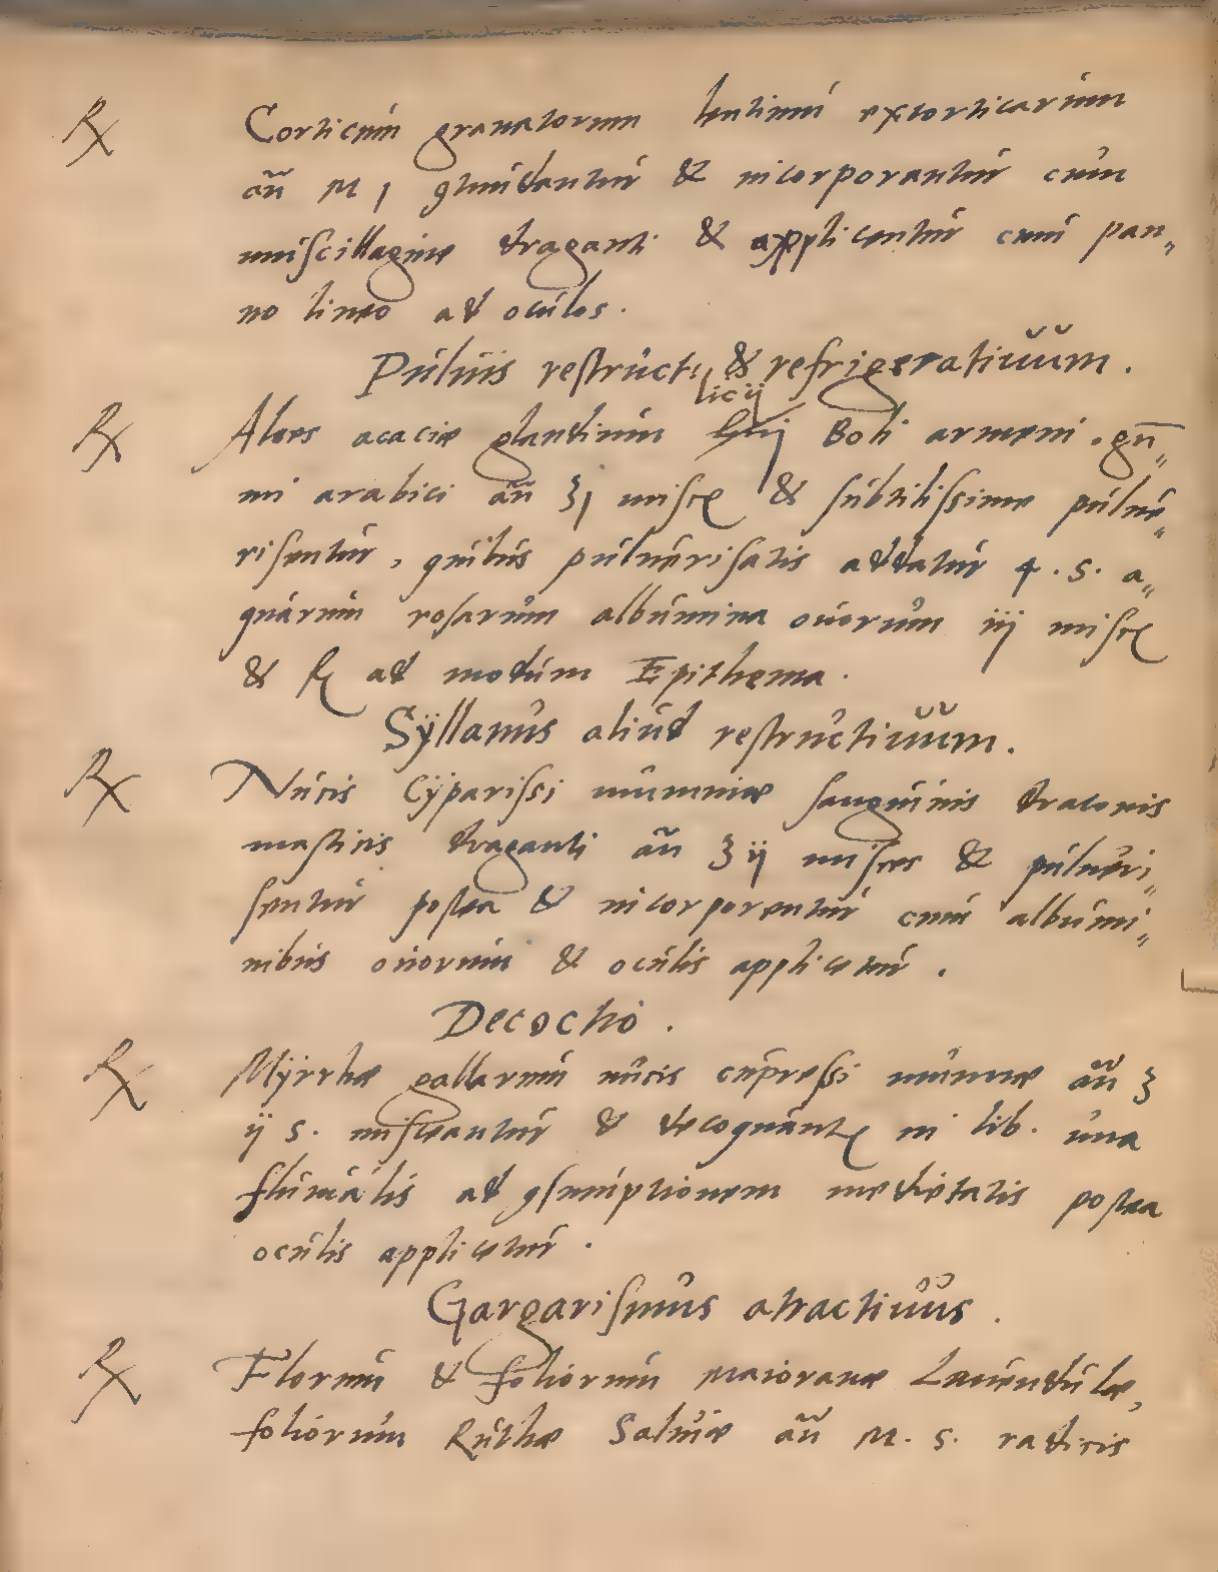 ℞ Corticum granatorum lentium excorticarum
añ M j contundantur & incorporantur cum
muscillagine draganti & applicentur cum pan„
no lineo ad oculos.
Puluis restructi, & refrigeratiuum.
licij
℞ Aloes acaciæ glandium Boli armeni . gu̅„
mi arabici añ ʒj misce & subtilissime pulue„
risentur, quibus puluerisatis addatur q. s. a„
quarum rosarum albumina ouorum iij misce
& ad modum Epithema.
Syllanus aliud restructiuum.
℞ Nucis Cyparissi mummiæ sanguinis draconis
masticis draganti añ ʒ ij misces & pulueri„
sentur postea & incorporentur cum albumi„
nibus ouorum & oculis applicetur.
Decoctio.
℞ Myrrhæ gallarum nucis cupressi mumiæ añ ʒ
ij s. misceantur & decoquant in lib. una
fluuialis ad consumptionem medietatis postea
oculis applicetur.
Gargarismus atractiuus.
℞ Florum & foliorum maioranæ Lauendulæ,
foliorum Ruthæ Saluiæ añ M. s. radicis